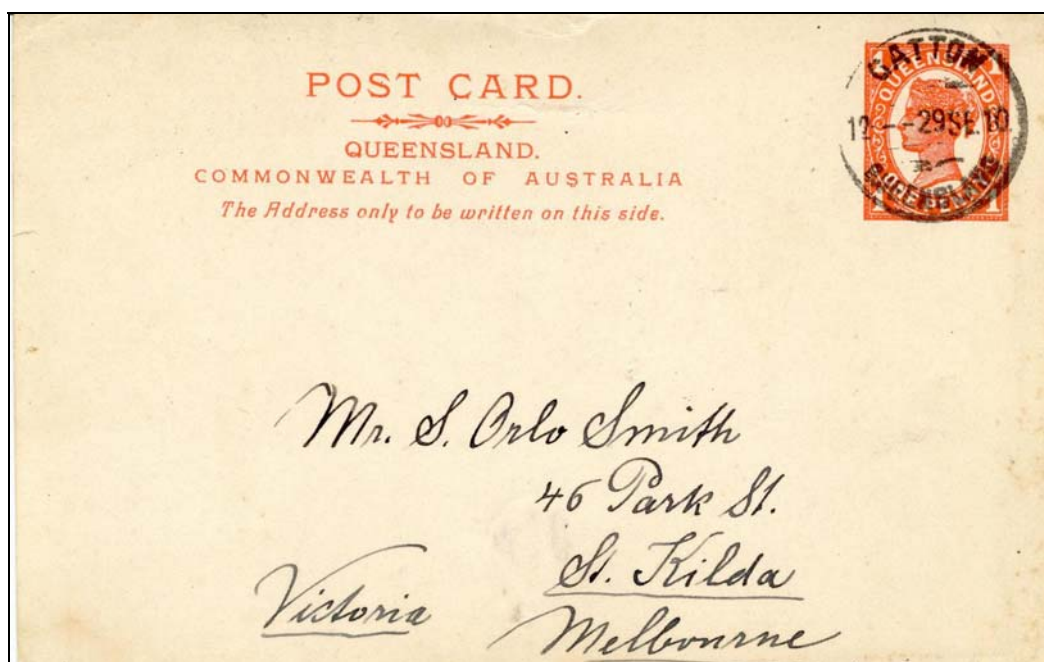 POST CARD.
QUEENSLAND.
COMMONWEALTH OF AUSTRALIA
The Address only to be written on this side.
QUEENSLAND
GATTON
29 SE.10
QUEENSLAND
1 1
Mr. S. Orlo Smith
46 Park St.
St. Kilda
Victoria
Melbourne